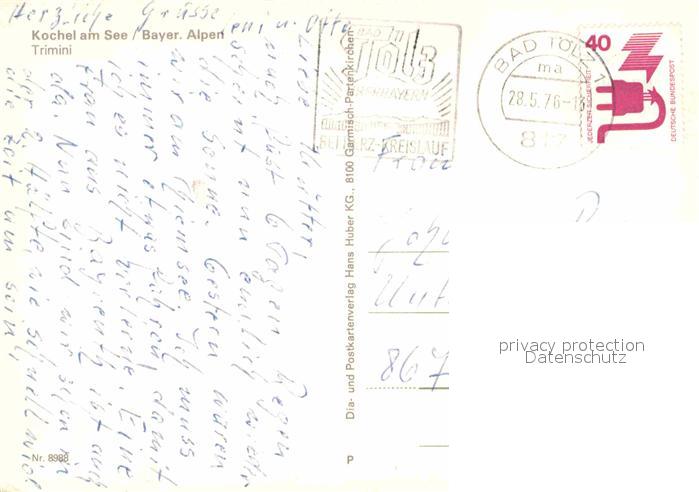 Herzliche Grüsse
Kochel am See / Bayer. Alpen
Trimini
Liebe Mutter!
nach fast 6 Tagen Regen
scheint nun endlich wieder
die Sonne. Gestern waren
wir am Chiemsee. Ich muss
immer etwas führen, damit
ich es nicht verlerne. Eine
Frau aus Bayreuth ist auch
da. Nun sind wir schon in
der 2. Hälfte, wie schnell wird
die Zeit um sein.
Nr. 8988
Dia- und Postkartenverlag Hans Huber KG., 8100 Garmisch-Partenkirchen
P
BAD TÖLZ
OBERBAYERN
HERZ-KREISLAUF
BAD TÖLZ 1
ma
28.5.76-13
817
40
JEDERZEIT SICHERHEIT
DEUTSCHE BUNDESPOST
Frau
867
privacy protection
Datenschutz